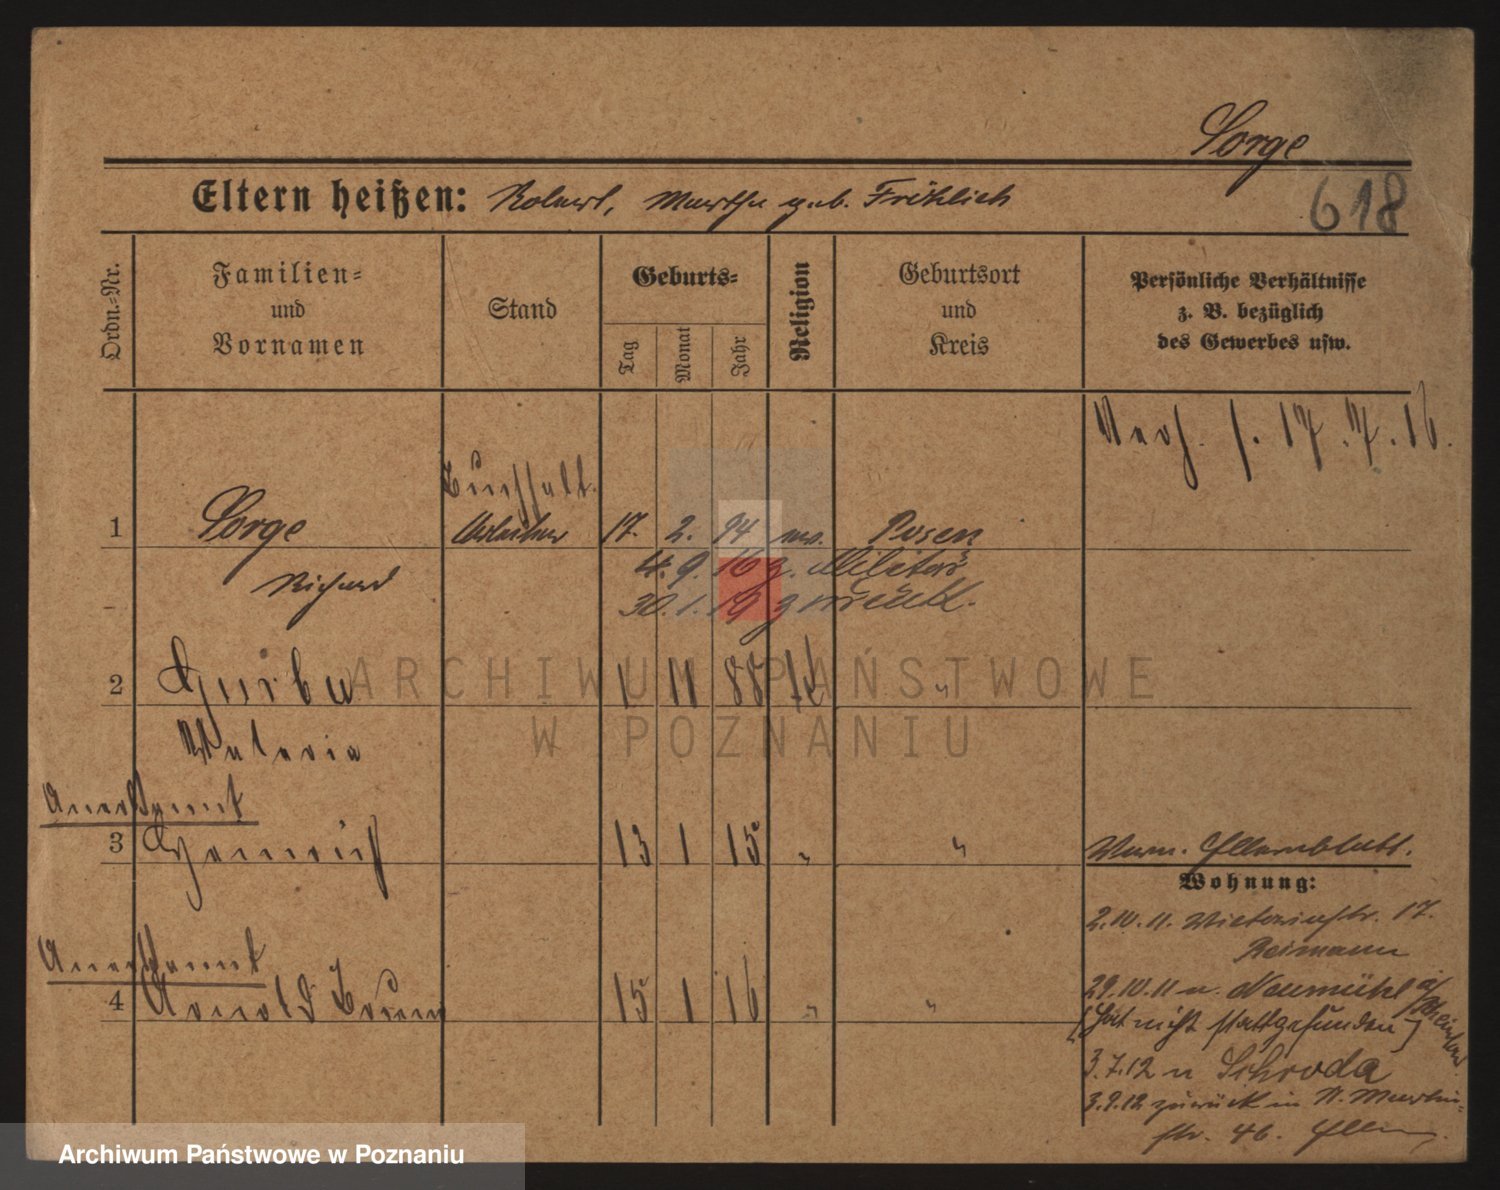 Sorge
618
Eltern heißen: Robert, Martha geb. Fröhlich
Ordn.-Nr.
Familien-
und
Vornamen
Stand
Geburts-
Tag
Monat
Jahr
Religion
Geburtsort
und
Kreis
Persönliche Verhältnisse
z. B. bezüglich
des Gewerbes usw.
Verh. s. 17.7.16.
Buchhalt.
1 Sorge Arbeiter 17. 2. 94 ev. Posen
Richard
4.9.16 z. Militär
30.1.19 zurück
2 1 11 88 "
Valeria
Anerkannt
3 Heinrich 13 1 15 " "
Anerkannt
4 Arnold Bruno 15 1 16 " "
Elternblatt.
Wohnung:
2.10.11. Victoriastr. 17.
Reimann
29.10.11 n. Neumühl
(hat nicht stattgefunden)
3.7.12 n Schroda
3.9.12 zurück in St. Martin-
str. 46.
ARCHIWUM PAŃSTWOWE
W POZNANIU
Archiwum Państwowe w Poznaniu